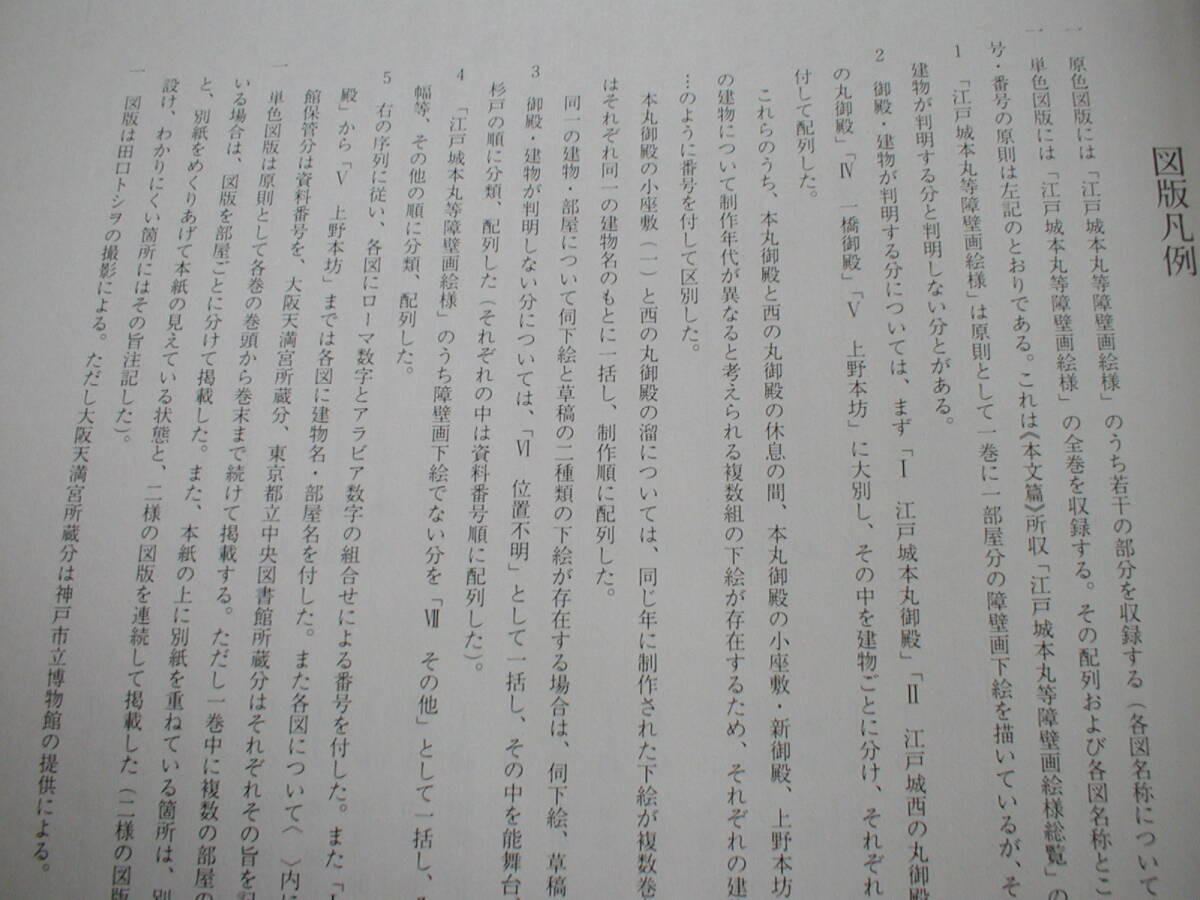 図版凡例
一　原色図版には「江戸城本丸等障壁画絵様」のうち若干の部分を収録する（各図名称について
一　単色図版には「江戸城本丸等障壁画絵様」の全巻を収録する。その配列および各図名称とこ
号・番号の原則は左記のとおりである。これは《本文篇》所収「江戸城本丸等障壁画絵様総覧」の
1　「江戸城本丸等障壁画絵様」は原則として一巻に一部屋分の障壁画下絵を描いているが、そ
建物が判明する分と判明しない分とがある。
2　御殿・建物が判明する分については、まず「Ⅰ　江戸城本丸御殿」「Ⅱ　江戸城西の丸御殿
の丸御殿」「Ⅳ　一橋御殿」「Ⅴ　上野本坊」に大別し、その中を建物ごとに分け、それぞれ
付して配列した。
これらのうち、本丸御殿と西の丸御殿の休息の間、本丸御殿の小座敷・新御殿、上野本坊
の建物について制作年代が異なると考えられる複数組の下絵が存在するため、それぞれの建
…のように番号を付して区別した。
本丸御殿の小座敷（一）と西の丸御殿の溜については、同じ年に制作された下絵が複数巻
はそれぞれ同一の建物名のもとに一括し、制作順に配列した。
同一の建物・部屋について伺下絵と草稿の二種類の下絵が存在する場合は、伺下絵、草稿
3　御殿・建物が判明しない分については、「Ⅵ　位置不明」として一括し、その中を能舞台、
杉戸の順に分類、配列した（それぞれの中は資料番号順に配列した）。
4　「江戸城本丸等障壁画絵様」のうち障壁画下絵でない分を「Ⅶ　その他」として一括し、
幅等、その他の順に分類、配列した。
5　右の序列に従い、各図にローマ数字とアラビア数字の組合せによる番号を付した。また「Ⅰ
殿」から「Ⅴ　上野本坊」までは各図に建物名・部屋名を付した。また各図について〈　〉内に
館保管分は資料番号を、大阪天満宮所蔵分、東京都立中央図書館所蔵分はそれぞれその旨を記
一　単色図版は原則として各巻の巻頭から巻末まで続けて掲載する。ただし一巻中に複数の部屋の
いる場合は、図版を部屋ごとに分けて掲載した。また、本紙の上に別紙を重ねている箇所は、別
と、別紙をめくりあげて本紙の見えている状態と、二様の図版を連続して掲載した（二様の図版
設け、わかりにくい箇所にはその旨注記した）。
一　図版は田口トシヲの撮影による。ただし大阪天満宮所蔵分は神戸市立博物館の提供による。